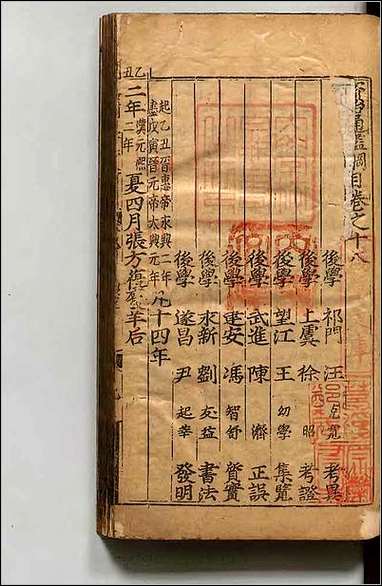 資治通鑑綱目卷之十八
後學 祁門 汪 克寬 考異
後學 上虞 徐 昭 考證
後學 望江 王 幼學 集覽
後學 武進 陳 濟 正誤
後學 建安 馮 智舒 質實
後學 永新 劉 友益 書法
後學 遂昌 尹 起莘 發明
起乙丑晉惠帝永興二年
盡戊寅晉元帝太興元年
凡十四年
乙丑
二年
漢元熙二年
夏四月張方復廢羊后